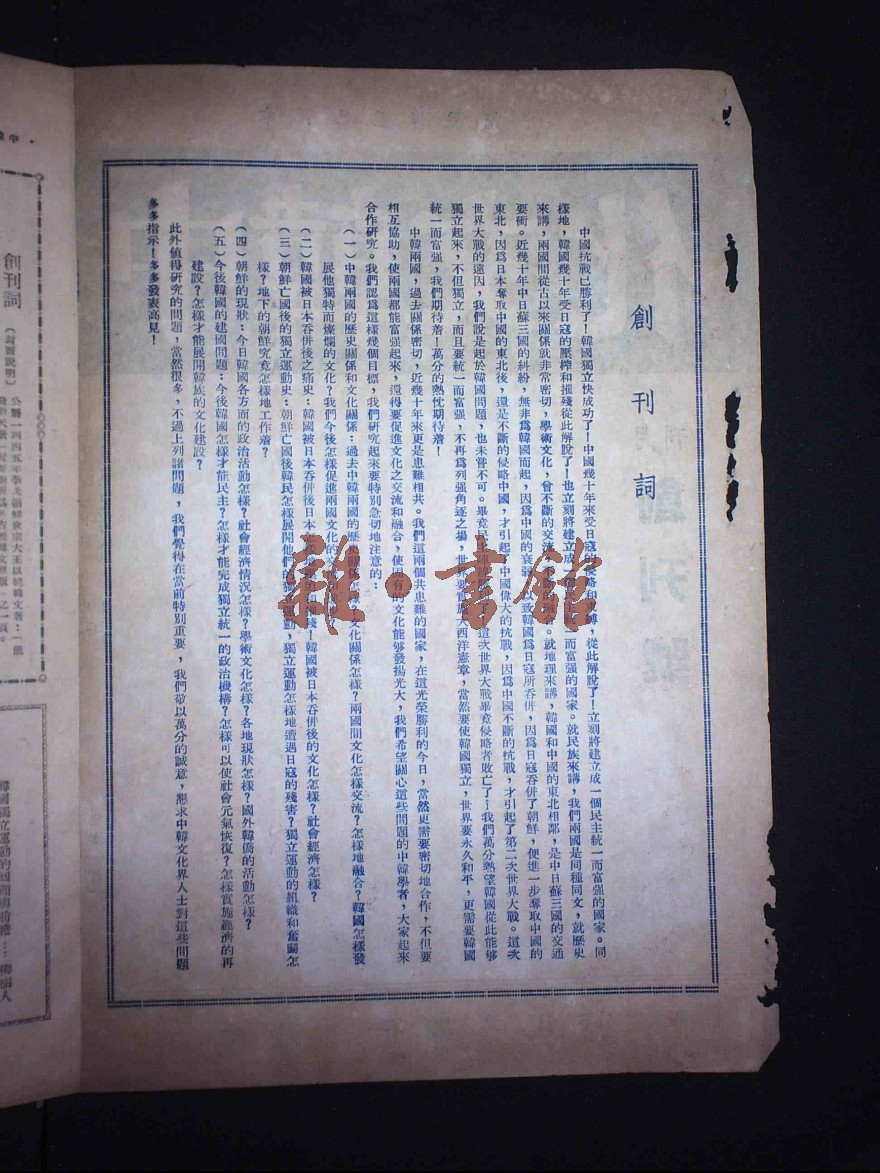 創刊詞
中國抗戰已勝利了！韓國獨立快成功了！中國幾十年來受日寇的侵略和束縛，從此解脫了！立刻將建立成一個民主統一而富强的國家。同
樣地，韓國幾十年受日寇的壓榨和摧殘從此解脫了！也立刻將建立成一個民主統一而富强的國家。就民族來講，我們兩國是同種同文，就歷史
來講，兩國間從古以來關係就非常密切，學術文化，曾不斷的交流，不斷的。就地理來講，韓國和中國的東北相鄰，是中日蘇三國的交通
要衝。近幾十年中日蘇三國的糾紛，無非爲韓國而起，因爲中國的衰弱致韓國爲日寇所吞併，因爲日寇吞併了朝鮮，便進一步奪取中國的
東北，因爲日本奪取中國的東北後，還是不斷的侵略中國，才引起了中國偉大的抗戰，因爲中國不斷的抗戰，才引起了第二次世界大戰。這次
世界大戰的遠因，我們說是起於韓國問題，也未嘗不可。畢竟民主了！這次世界大戰畢竟侵略者敗亡了！我們萬分熱望韓國從此能够
獨立起來，不但獨立，而且要統一而富强，不再爲列强角逐之場，世界要實施大西洋憲章，當然要使韓國獨立，世界要永久和平，更需要韓國
統一而富强，我們期待着！萬分的熱忱期待着！
中韓兩國，過去關係密切，近幾十年來更是患難相共。我們這兩個共患難的國家，在這光榮勝利的今日，當然更需要密切地合作，不但要
相互協助，使兩國都能富强起來，還得要促進文化之交流和融合，使固有的文化能够發揚光大，我們希望關心這些問題的中韓學者，大家起來
合作研究。我們認爲這樣幾個目標，我們研究起來要特別急切地注意的：
（一）中韓兩國的歷史關係和文化關係：過去中韓兩國的歷史關係怎樣？文化關係怎樣？兩國間文化怎樣交流？怎樣地融合？韓國怎樣發
展他獨特而燦爛的文化？我們今後怎樣促進兩國文化的交
（二）韓國被日本吞併後之痛史：韓國被日本吞併後日本怎樣殘！韓國被日本吞併後的文化怎樣？社會經濟怎樣？
（三）朝鮮亡國後的獨立運動史：朝鮮亡國後韓民怎樣展開他們的獨立運動，獨立運動怎樣地遭遇日寇的殘害？獨立運動的組織和奮鬬怎
樣？地下的朝鮮究竟怎樣地工作着？
（四）朝鮮的現狀：今日韓國各方面的政治活動怎樣？社會經濟情況怎樣？學術文化怎樣？各地現狀怎樣？國外韓僑的活動怎樣？
（五）今後韓國的建國問題：今後韓國怎樣才能民主？怎樣才能完成獨立統一的政治機構？怎樣可以使社會元氣恢復？怎樣實施經濟的再
建設？怎樣才能展開韓族的文化建設？
此外值得研究的問題，當然很多，不過上列諸問題，我們覺得在當前特別重要，我們敬以萬分的誠意，懇求中韓文化界人士對這些問題
多多指示！多多發表高見！
雜·書館
創刊詞
（封面說明）